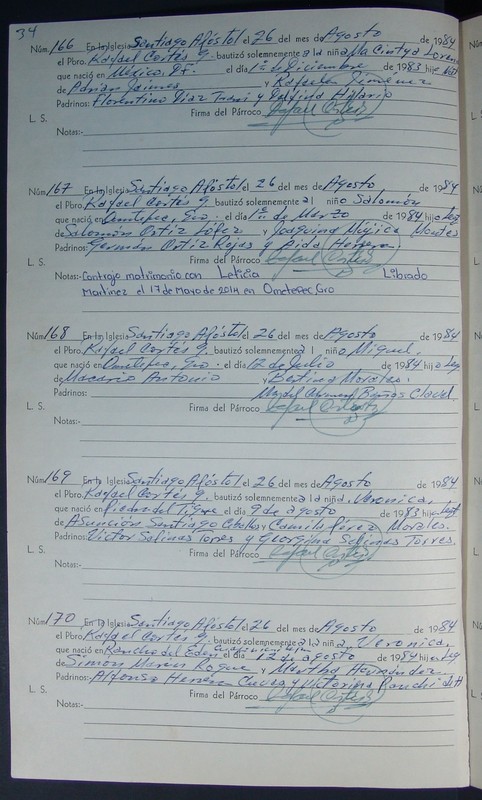 34
Núm. 166 En la Iglesia Santiago Apóstol el 26 del mes de Agosto de 1984
el Pbro. Rafael Cortés G. bautizó solemnemente a la niña Ma Cintya Loren
que nació en México, D.F. el día 1º de Diciembre de 1983 hija
de Adrian Jaimes y Rafaela Jiménez
Padrinos: Florentino Díaz y Hilario
L. S. Firma del Párroco Rafael Cortés
Notas:-
Núm. 167 En la Iglesia Santiago Apóstol el 26 del mes de Agosto de 1984
el Pbro. Rafael Cortés G. bautizó solemnemente al niño Salomón
que nació en Ometepec, Gro. el día 11 de Marzo de 1984 hijo Leg
de Salomón Ortiz López y Joaquina Mujica Montes
Padrinos: Germán Ortiz Rojas y Aida Herrera
L. S. Firma del Párroco Rafael Cortés
Notas:- Contrajo matrimonio con Leticia Librado
Martinez el 17 de Mayo de 2014 en Ometepec, Gro
Núm. 168 En la Iglesia Santiago Apóstol el 26 del mes de Agosto de 1984
el Pbro. Rafael Cortés G. bautizó solemnemente al niño Miguel,
que nació en Ometepec, Gro. el día 12 de Julio de 1984 hijo Leg
de Macario Antonio y Bertina Morales.
Padrinos: Carmen Baños Clavel
L. S. Firma del Párroco Rafael Cortés
Notas:-
Núm. 169 En la Iglesia Santiago Apóstol el 26 del mes de Agosto de 1984
el Pbro. Rafael Cortés G. bautizó solemnemente a la niña Veronica,
que nació en Piedra del Tigre el día 9 de agosto de 1983 hija
de Asunción Santiago y Camila Pérez Morales.
Padrinos: Victor Salinas Torres y Georgina Salinas Torres.
L. S. Firma del Párroco Rafael Cortés
Notas:-
Núm. 170 En la Iglesia Santiago Apóstol el 26 del mes de Agosto de 1984
el Pbro. Rafael Cortés G. bautizó solemnemente a la niña Veronica,
que nació en Rancho del Edén el día 12 de agosto de 1984 hija Leg
de Simón Marín Roque y Martha Hernández
Padrinos: Alfonso Herrera y Victorina
L. S. Firma del Párroco Rafael Cortés
Notas:-